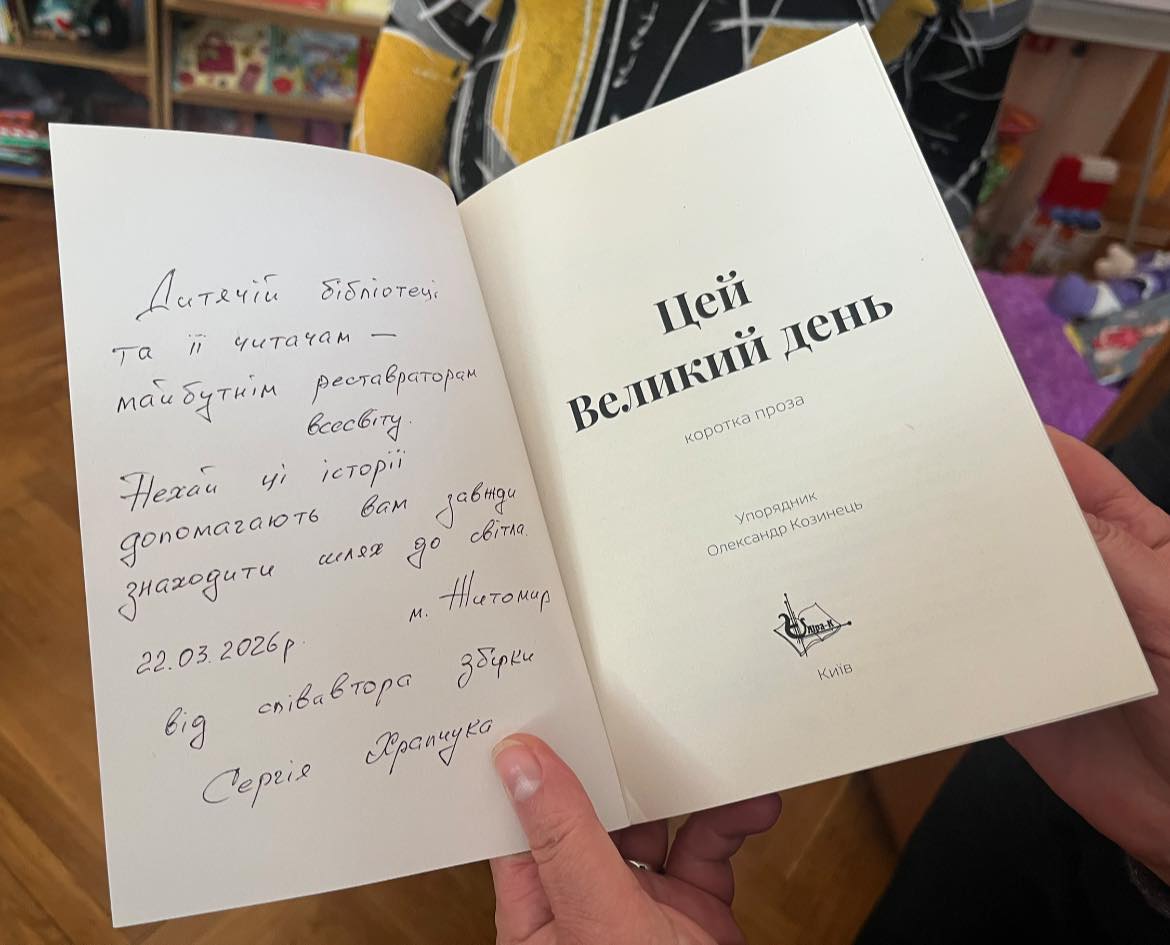 Дитячій бібліотеці
та її читачам –
майбутнім реставраторам
всесвіту.
Нехай ці історії
допомагають вам завжди
знаходити шлях до світла.
м. Житомир
22.03.2026р.
від співавтора збірки
Сергія Храпчука
Цей
Великий день
коротка проза
Упорядник
Олександр Козинець
Ліра-К
Київ